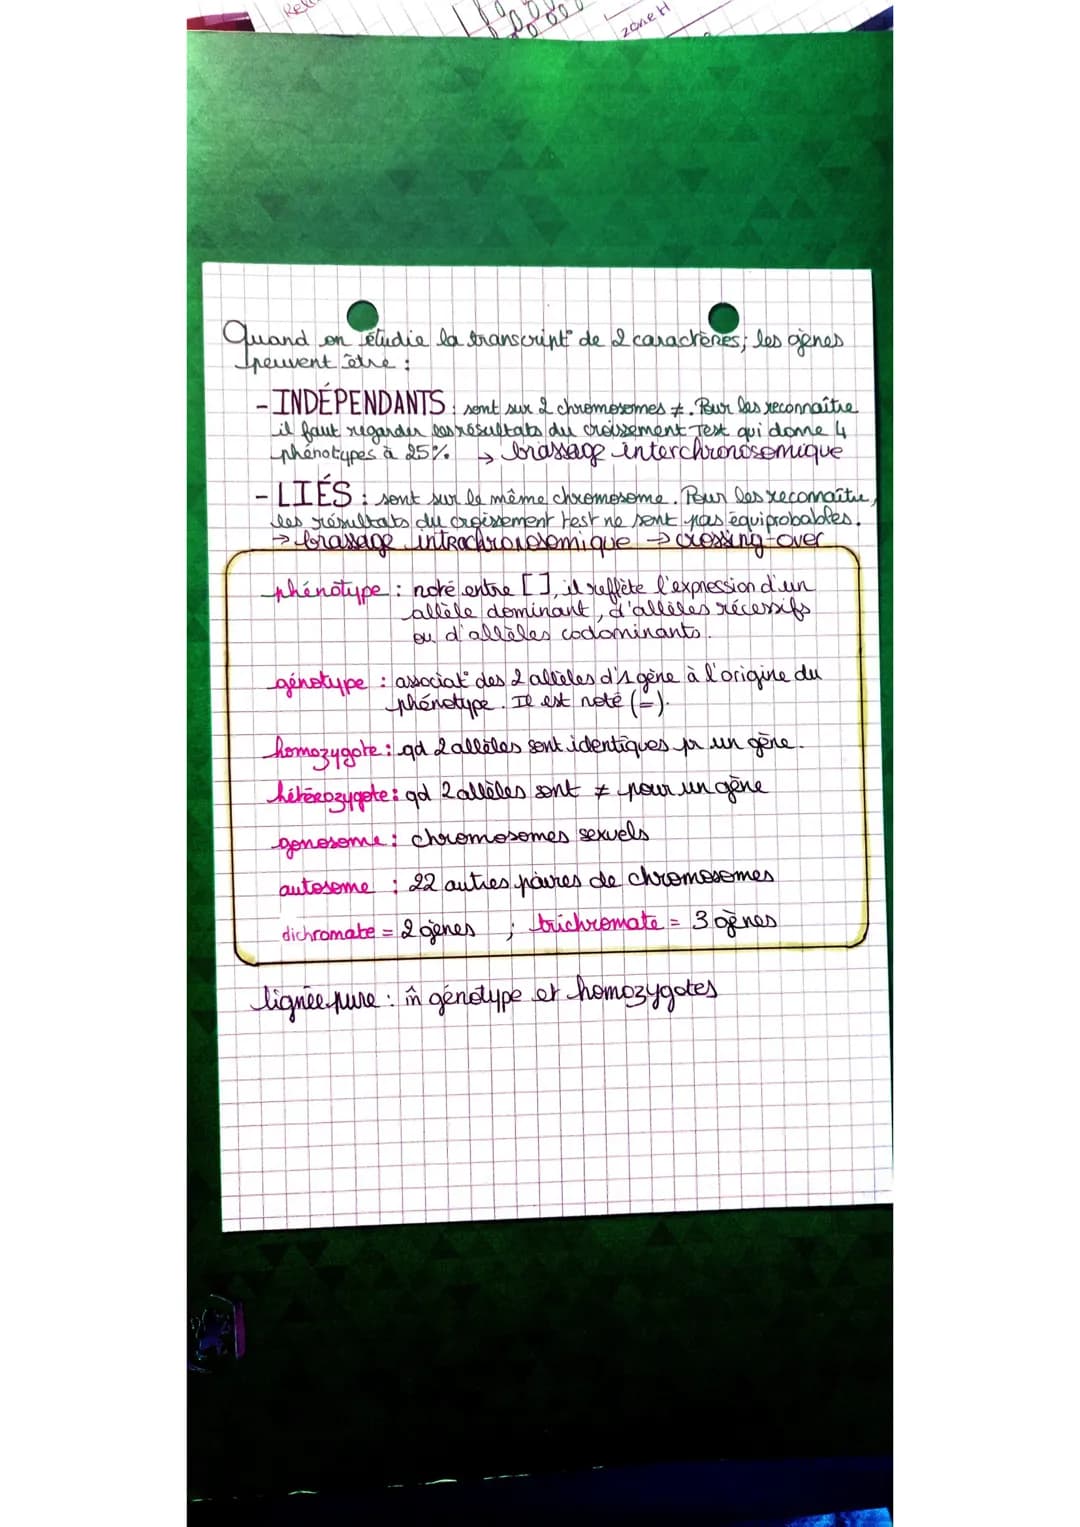 zone H
Quand on étudie la transcript° de 2 caractères, les gènes
peuvent être :
- INDÉPENDANTS : sont sur 2 chromosomes ≠. Pour les reconnaître
il faut regarder les résultats du croisement-Test qui donne 4
phénotypes à 25%. → brassage interchronosomique
- LIÉS : sont sur le même chromosome. Pour les reconnaître,
les résultats du croisement test ne sont pas équiprobables.
→ brassage intrachronosomique → crossing-over
phénotype : noté entre [ ], il reflète l'expression d'un
allèle dominant, d'allèles récessifs
ou d'allèles codominants.
génotype : associat° des 2 allèles d'1 gène à l'origine du
phénotype. Il est noté (=).
homozygote : qd 2 allèles sont identiques pr un gène.
hétérozygote : qd 2 allèles sont ≠ pour un gène
gonosome : chromosomes sexuels
autosome : 22 autres paires de chromosomes
dichromate = 2 gènes ; trichromate = 3 gènes
lignée pure : m̂ génotype et homozygotes